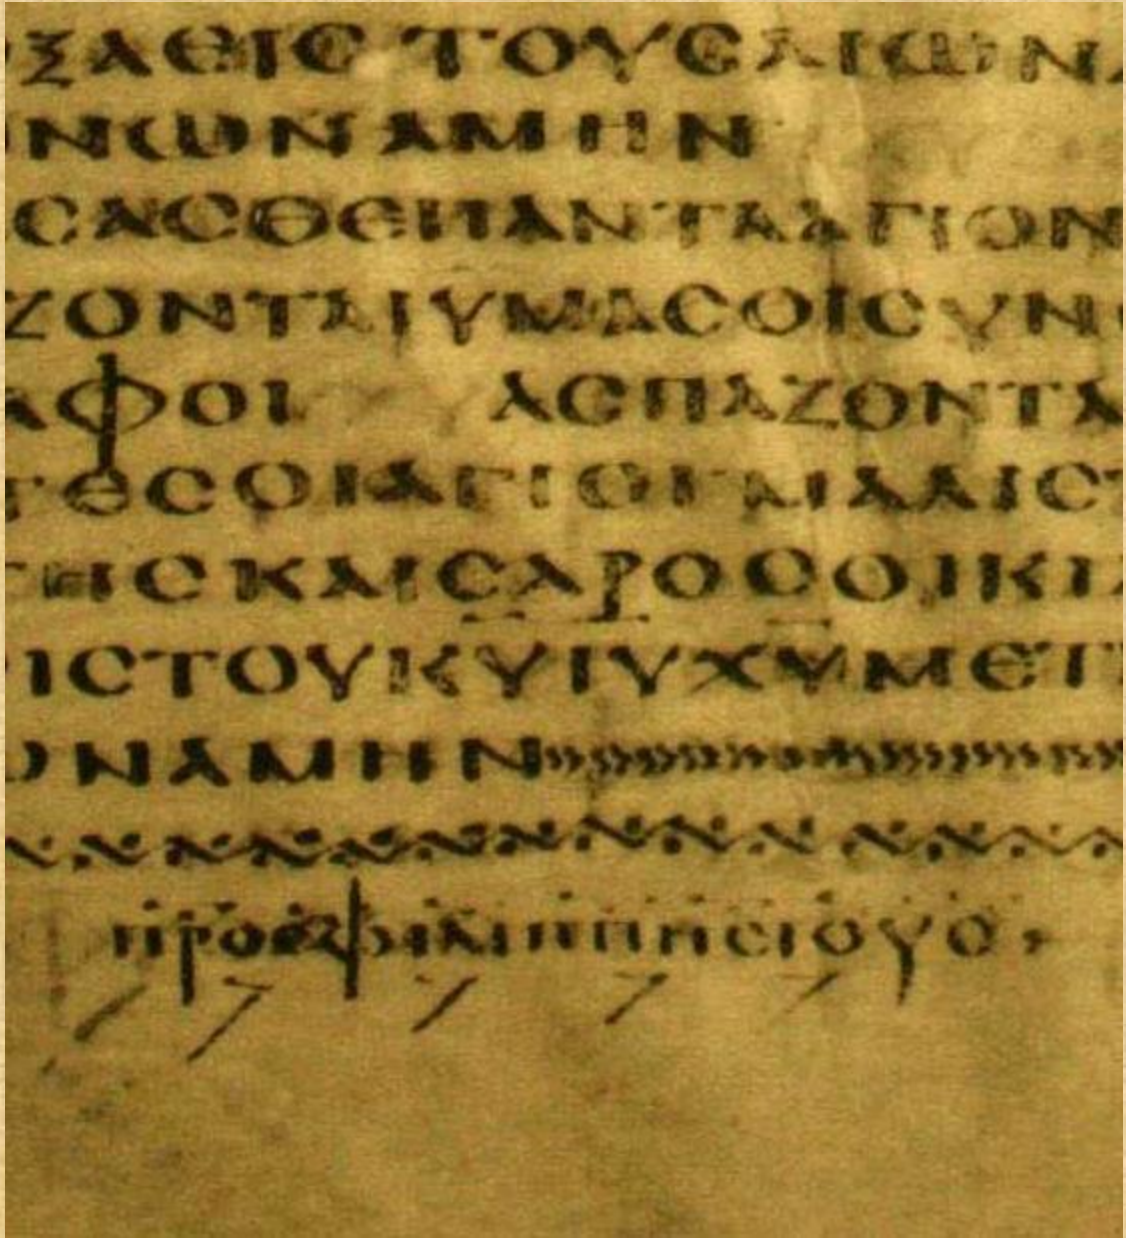 ΞΑΕΙϹΤΟΥϹΑΙΩΝΑ
ΝΩΝΑΜΗΝ
ϹΑϹΘΕΠΑΝΤΑΑΓΙΟΝ
ΖΟΝΤΑΙΥΜΑϹΟΙϹΥΝ
ΑΦΟΙ ΑϹΠΑΖΟΝΤΑ
ΤΕϹΟΙΑΓΙΟΙΜΑΛΙϹΤ
ΤΗϹΚΑΙϹΑΡΟϹΟΙΚΙΑ
ΙϹΤΟΥΚΥΙΥΧΥΜΕΤ
ΩΝΑΜΗΝ
ΠΡΟϹΦΙΛΙΠΠΗϹΙΟΥϹ